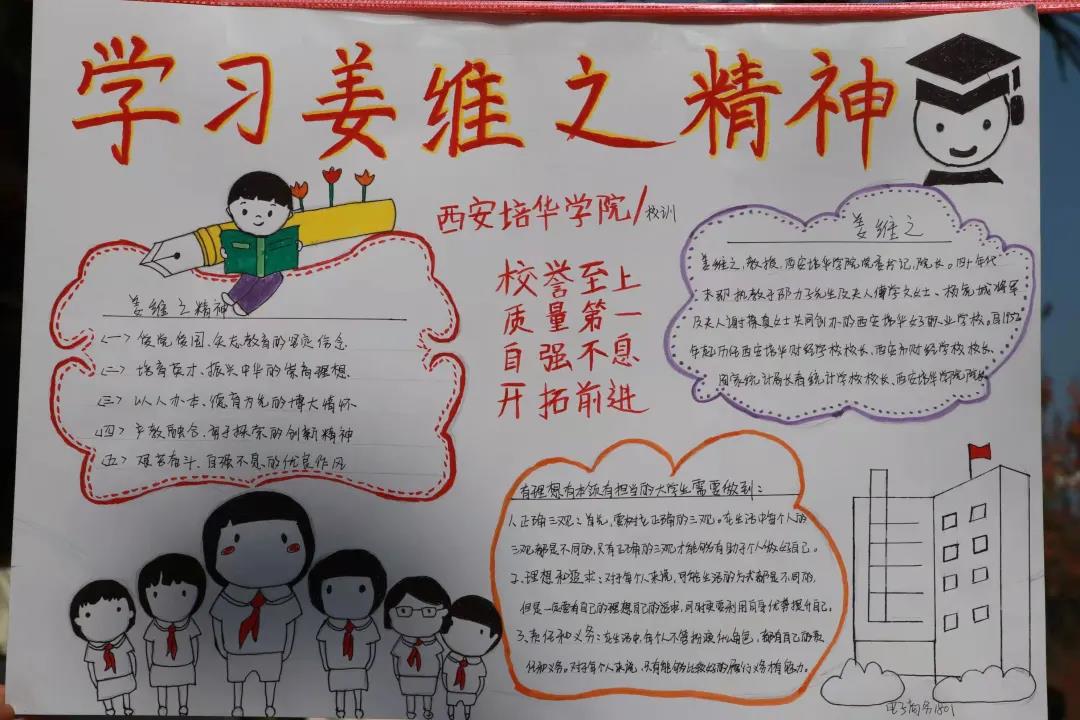 学习姜维之精神
西安培华学院/校训
校誉至上
质量第一
自强不息
开拓前进
姜维之精神
(一) 爱党爱国、矢志教育的坚定信念
(二) 培育英才、振兴中华的崇高理想
(三) 以人办本、德育为先的博大情怀
(四) 产教融合、勇于探索的创新精神
(五) 艰苦奋斗、自强不息的优良作风
姜维之
姜维之,教授,西安培华学院党委书记,院长。四十年代
末期执教于邵力子先生及夫人傅学文女士、杨虎城将军
及夫人谢葆真女士共同创办的西安培华女子职业学校。自1952
年起历任西安培华财经学校校长、西安市财经学校校长、
国家统计局长春统计学校校长、西安培华学院院长
有理想有本领有担当的大学生需要做到:
1、正确三观:首先,要树立正确的三观。在生活中每个人的
三观都是不同的,只有正确的三观才能够有助于个人做好自己。
2、理想和追求:对于每个人来说,可能生活的方式都是不同的,
但是一定要有自己的理想自己的追求,同时更要利用自身优势提升自己。
3、责任和义务:在生活中每个人不管扮演什么角色,都有自己的责
任和义务。对于每个人来说,只有能够比较好的履行义务
电子商务1801